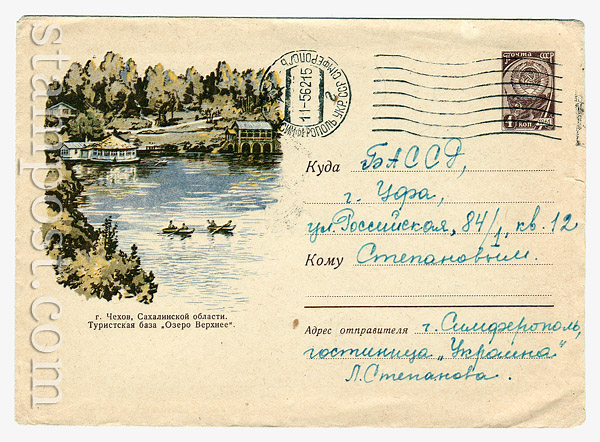 ПОЧТА СССР
4 КОП
СИМФЕРОПОЛЬ УКР. ССР СИМФЕРОПОЛЬ
11-56215
Куда БАССР,
г. Уфа,
ул. Российская, 84/1, кв. 12
Кому Степановым.
г. Чехов, Сахалинской области.
Туристская база „Озеро Верхнее".
Адрес отправителя г. Симферополь,
гостиница „Украина"
Л. Степанова.
stampost.com